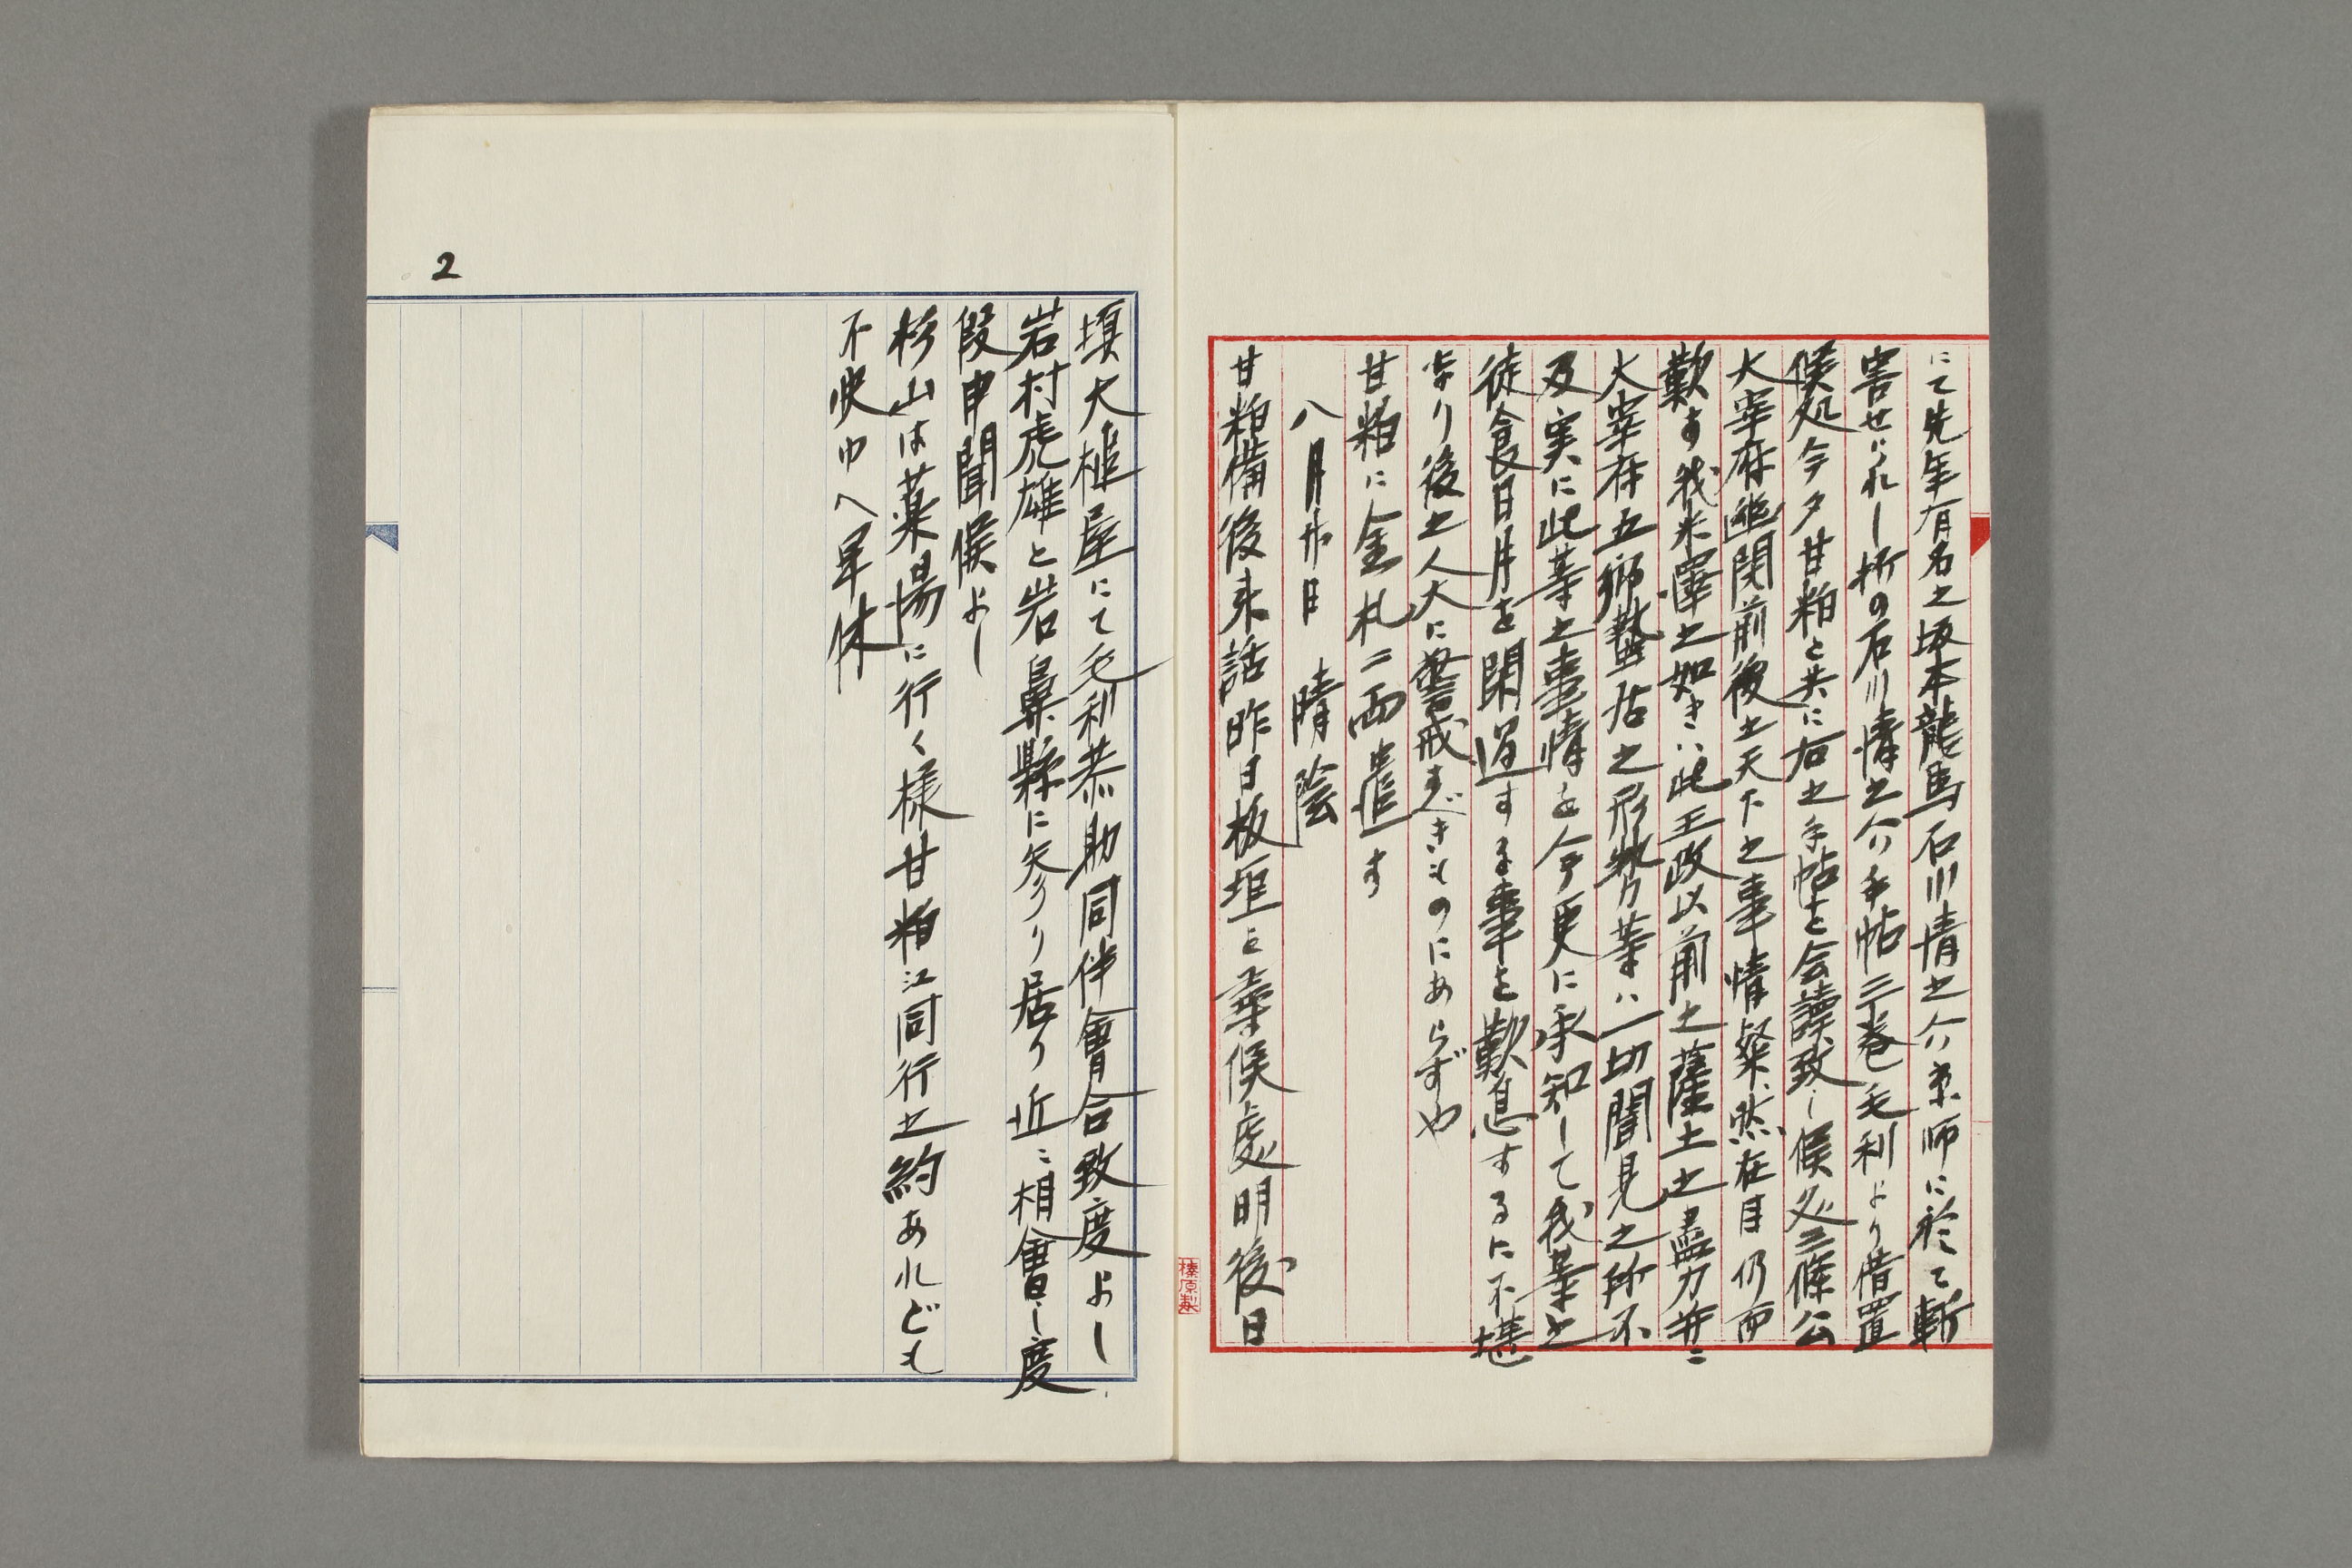 にて先年有名之坂本龍馬石川情之介京師に於て斬
害せられし折の石川情之介手帖三巻毛利より借置
候処今夕甘粕と共に右之手帖を会読致し候処三條公
大宰府幽閑前後之天下之事情粲然在目仍而
歎す我米澤之如きハ此王政以前之薩土之盡力并ニ
大宰府五卿蟄居之形勢等ハ一切聞見之所不
及実に此等之事情を今更に承知して我等之
徒食日月を閑過する事を歎息するに不堪
なり後之人大に警戒すべきものにあらずや
甘粕に金札二両遣す
八月廿日 晴陰
甘粕備後来話昨日板垣と会候處明後日
大槌屋にて毛利恭助同伴會合致度よし
岩村虎雄と岩鼻縣に参り居り近々相會し度
段申聞候よし
杉山は薬湯に行く様甘粕江同行之約あれども
不快ゆへ早休
2
榛原製